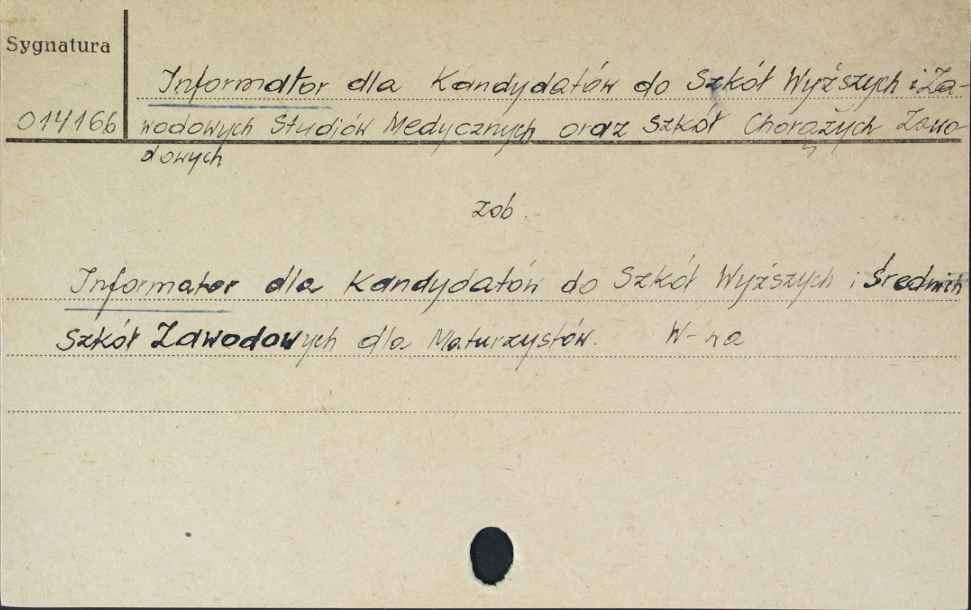 Sygnatura
Informator dla Kandydatów do Szkół Wyższych i Za-
014166 wodowych Studiów Medycznych oraz Szkół Chorążych Zawo
dowych
zob.
Informator dla Kandydatów do Szkół Wyższych i Średnich
Szkół Zawodowych dla Maturzystów. W-na